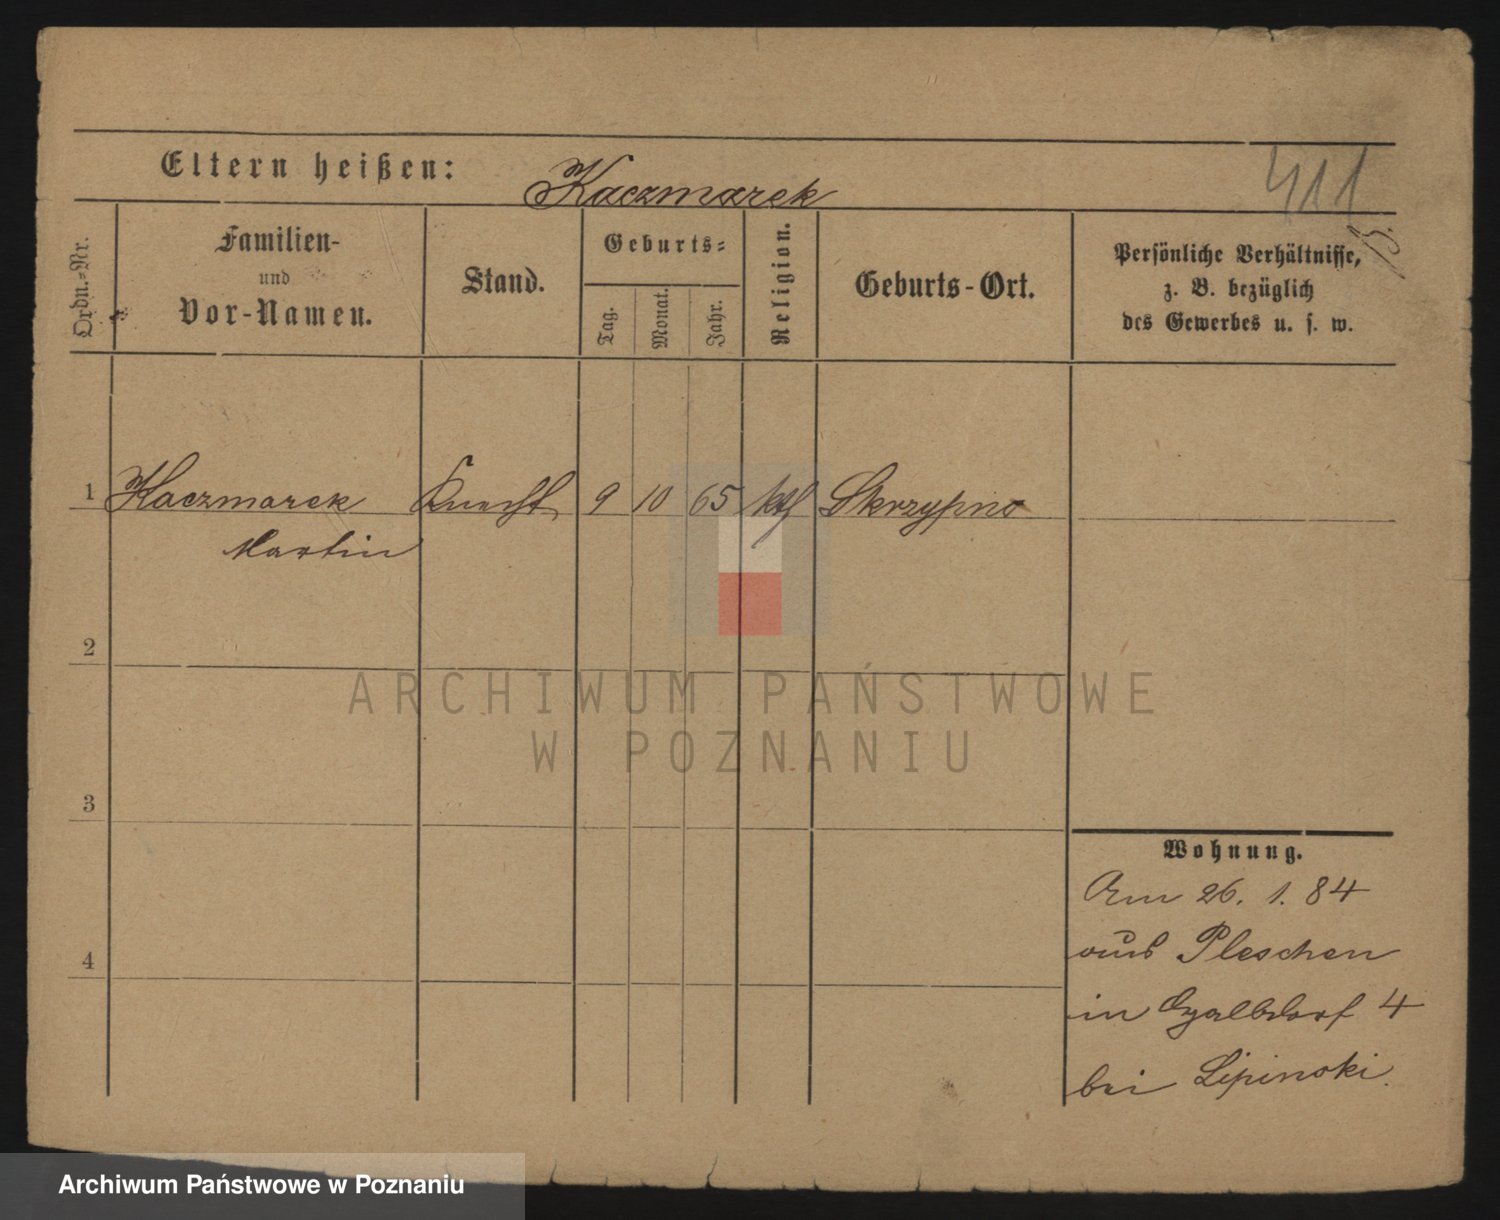 411
Eltern heißen: Kaczmarek
Ordn.-Nr.
Familien-
und
Vor-Namen.
Stand.
Geburts-
Tag.
Monat.
Jahr.
Religion.
Geburts-Ort.
Persönliche Verhältnisse,
z. B. bezüglich
des Gewerbes u. s. w.
1 Kaczmarek Knecht 9 10 65 kth Skrzypno
Martin
2
ARCHIWUM PAŃSTWOWE
W POZNANIU
3
Wohnung.
Am 26. 1. 84
aus Pleschen
4
in 4
bei Lipinski.
Archiwum Państwowe w Poznaniu